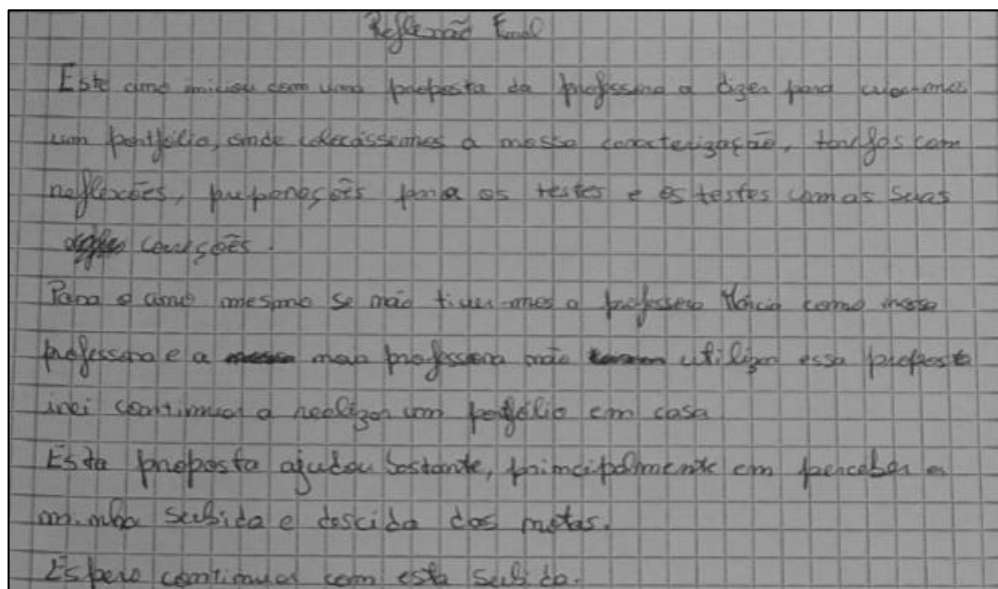 Reflexão Final
Este ano iniciou com uma proposta da professora a dizer para criar-mos
um portfólio, onde colocássemos a nossa caracterização, tarefas com
reflexões, preparações para os testes e os testes com as suas
correções.
Para o ano mesmo se não tiver-mos a professora como nossa
professora e a professora não utilizar essa proposta
irei continuar a realizar um portfólio em casa
Esta proposta ajudou bastante, principalmente em perceber a
minha subida e descida das notas.
Espero continuar com esta subida.